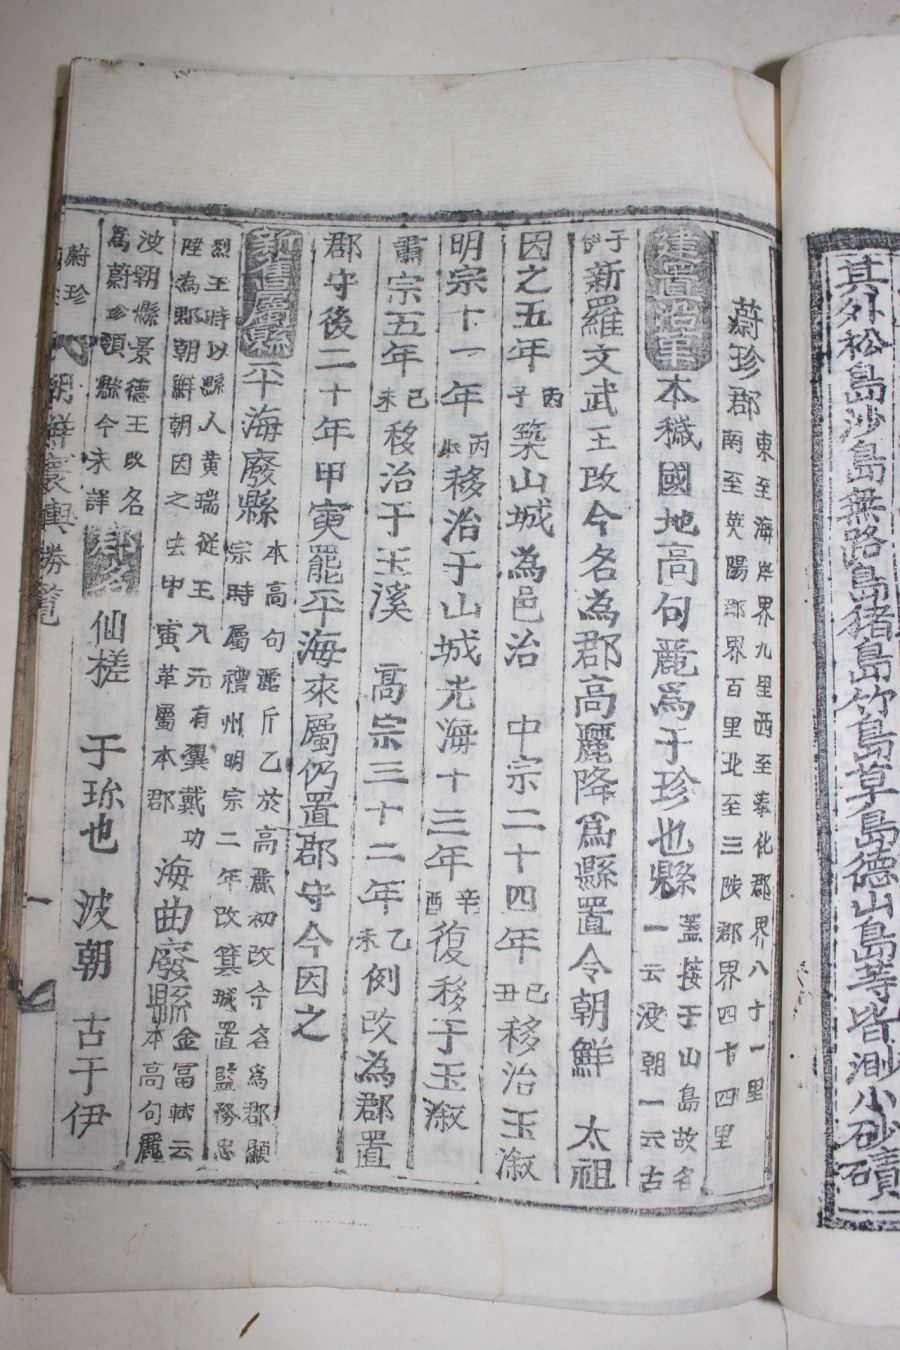 其外松島沙島無路島猪島竹島草島德山島等皆測小砂磧
蔚珍郡 東至海岸界九里西至奉化郡界八十一里
南至英陽郡界百里北至三陟郡界四十四里
建置沿革 本穢國地高句麗爲于珍也縣 蓋接于山島故名
一云波朝一云古
于伊 新羅文武王改今名為郡高麗降爲縣置令朝鮮 太祖
因之五年 丙子 築山城為邑治 中宗二十四年 己丑 移治玉溆
明宗十一年 丙辰 移治于山城光海十三年 辛酉 復移于玉溆
肅宗五年 己未 移治于玉溪 高宗三十二年 乙未 例改為郡置
郡守後二十年甲寅罷平海來屬仍置郡守今因之
新舊屬縣 平海廢縣 本高句麗斤乙於高麗初改今名爲郡顯
宗時屬禮州明宗二年改箕城置監務忠
烈王時以縣人黃瑞從王入元有翼戴功
陞為郡朝鮮朝因之去甲寅革屬本郡 海曲廢縣 金富軾云
本高句麗
波朝縣景德王改名
爲蔚珍領縣今未詳 郡名 仙槎 于珎也 波朝 古于伊
蔚珍
朝鮮寰輿勝覽
一